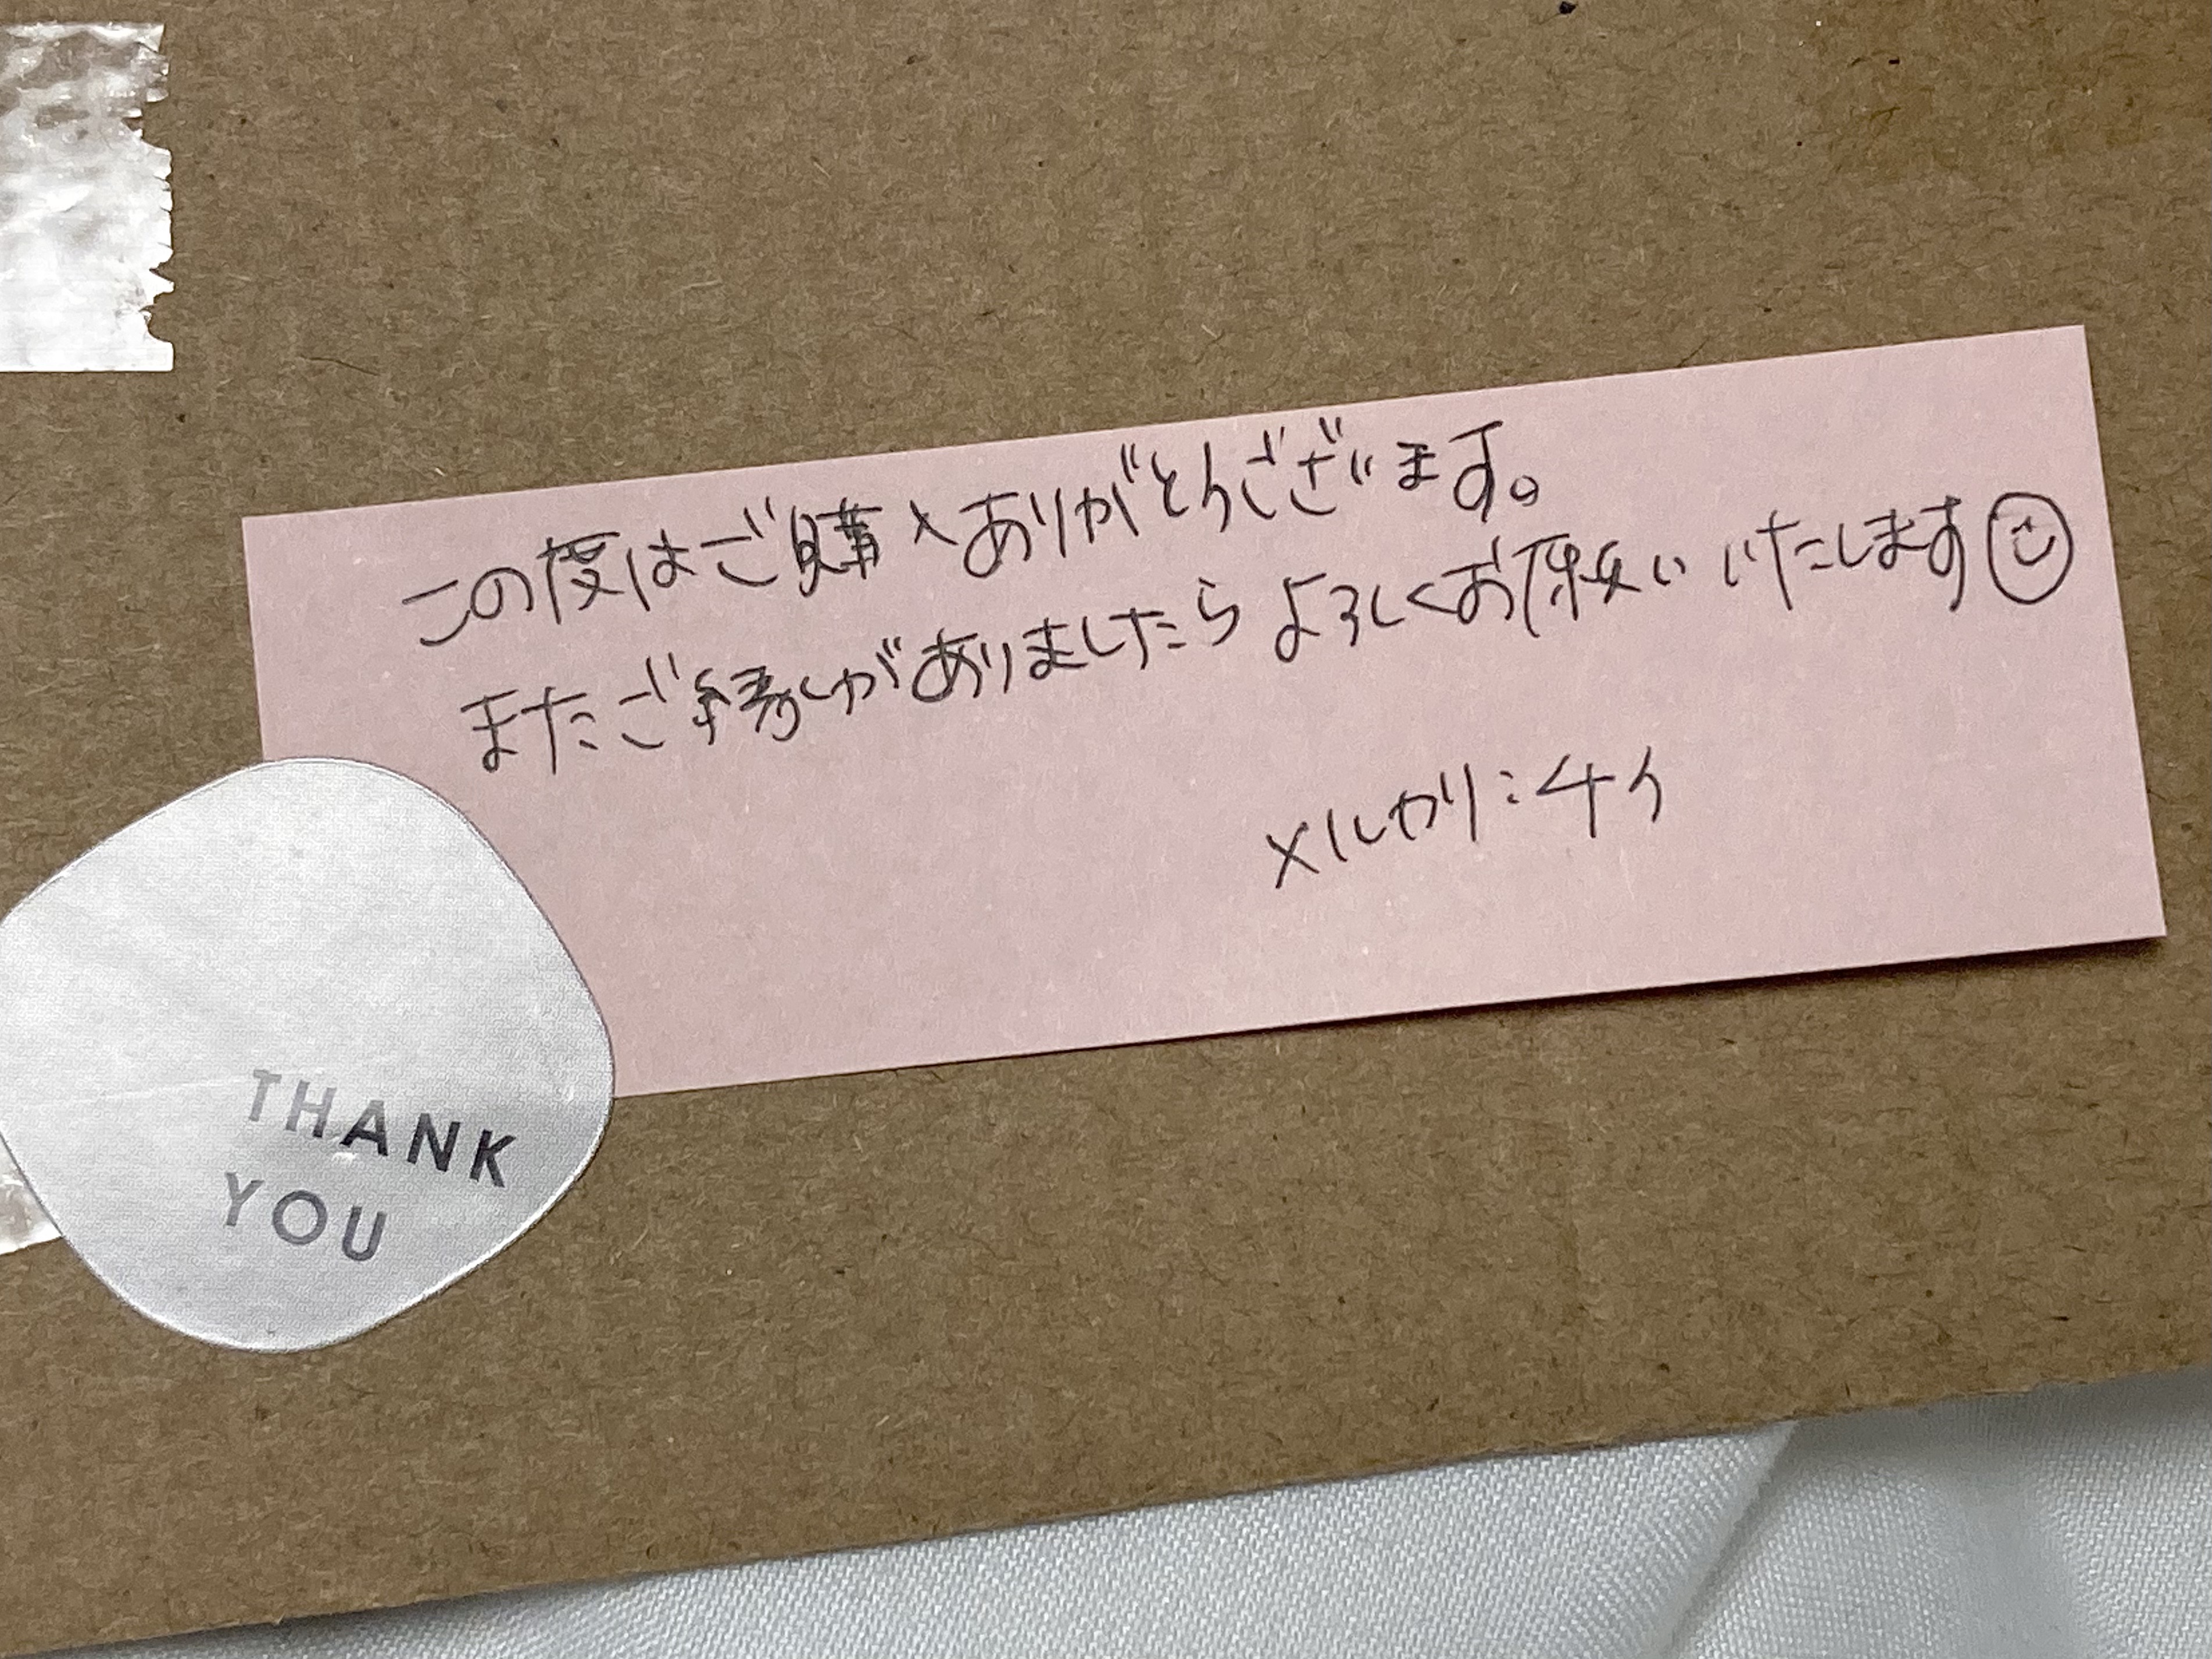 この度はご購入ありがとうございます。
またご縁がありましたらよろしくお願いいたします
メルカリ：
THANK
YOU